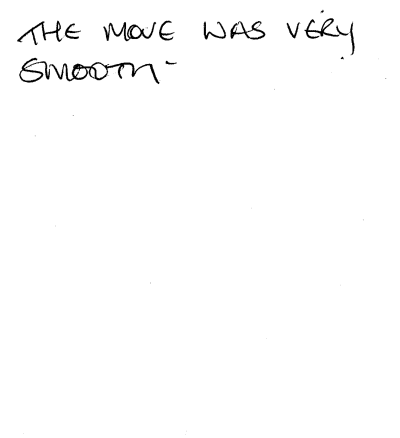 THE MOVE WAS VERY
SMOOTH-